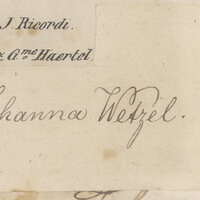 J Ricordi.
& G.me Haertel.
hanna Wetzel.